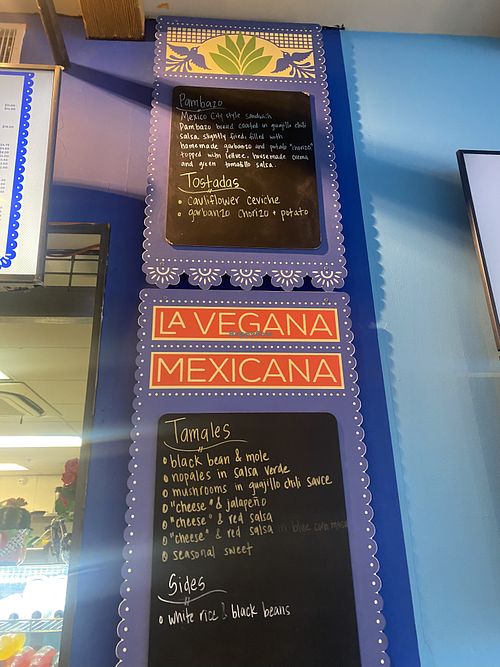 Pambazo
Mexico City style sandwich
Pambazo bread coated in guajillo chili
salsa, slightly fried, filled with
homemade garbanzo and potato "chorizo"
topped with lettuce, housemade crema
and green tomatillo salsa.
Tostadas
• cauliflower ceviche
• garbanzo chorizo + potato
LA VEGANA
MEXICANA
Tamales
• black bean & mole
• nopales in salsa verde
• mushrooms in guajillo chili sauce
• "cheese" & jalapeño
• "cheese" & red salsa
• "cheese" & red salsa in blue corn masa
• seasonal sweet
Sides
• white rice & black beans